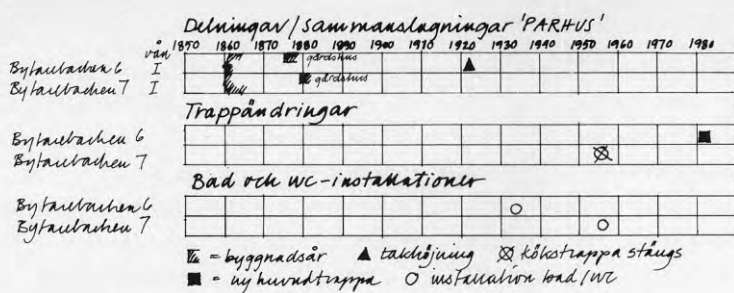 Delningar/sammanslagningar 'PARHUS'
vån 1850 1860 1870 1880 1890 1900 1910 1920 1930 1940 1950 1960 1970 1980
Bytarebacken 6 I gårdshus
Bytarebacken 7 I gårdshus
Trappändringar
Bytarebacken 6
Bytarebacken 7
Bad och wc-installationer
Bytarebacken 6
Bytarebacken 7
= byggnadsår takhöjning kökstrappa stängs
= ny huvudtrappa installation bad/WC